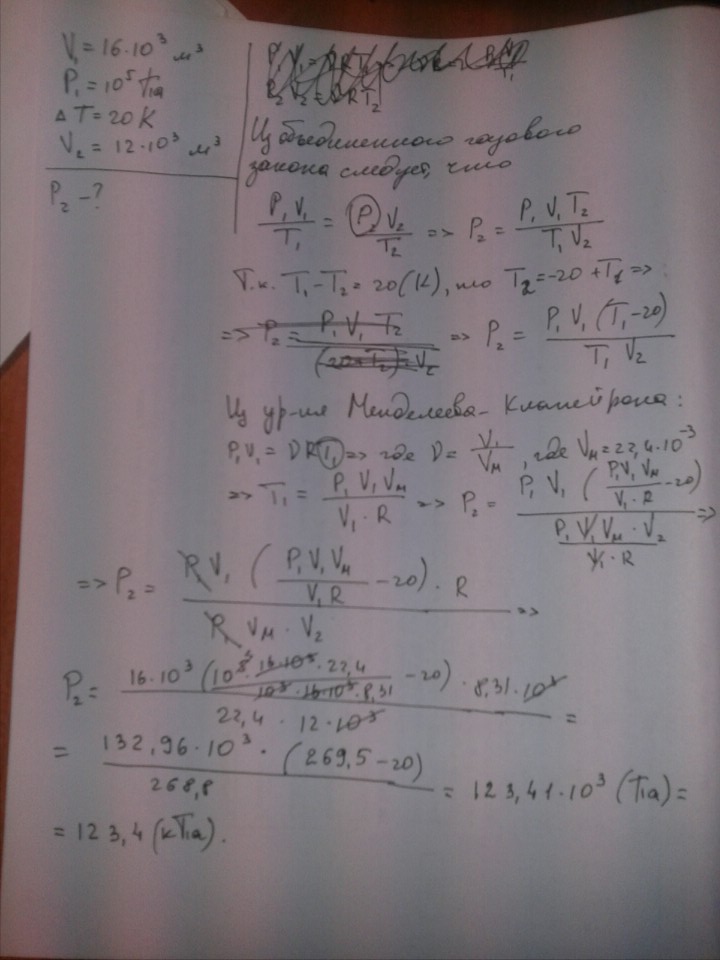 V₁ = 16·10³ м³
P₁ = 10⁵ Па
ΔT = 20 К
V₂ = 12·10³ м³
P₂ - ?
P₂ V₂ = νRT₂
Из объединенного газового
закона следует, что
P₁V₁/T₁ = P₂V₂/T₂ => P₂ = P₁V₁T₂/T₁V₂
Т.к. T₁ - T₂ = 20(К), то T₂ = -20 + T₁ =>
=> P₂ = P₁V₁T₂/(20-T₂)·V₂ => P₂ = P₁V₁(T₁-20)/T₁V₂
Из ур-ия Менделеева-Клапейрона:
P₁V₁ = νRT₁ => где ν = V₁/Vм, где Vм = 22,4·10⁻³
=> T₁ = P₁V₁Vм/V₁·R => P₂ = P₁V₁(P₁V₁Vм/V₁·R - 20)/(P₁V₁Vм·V₂/V₁·R) =>
=> P₂ = P₁V₁(P₁V₁Vм/V₁R - 20)·R/P₁Vм·V₂ =>
P₂ = 16·10³(10⁵·16·10³·22,4/10³·16·10³·8,31 - 20)·8,31·10³/22,4·12·10³ =
= 132,96·10³·(269,5-20)/268,8 = 123,41·10³(Па) =
= 123,4(кПа).